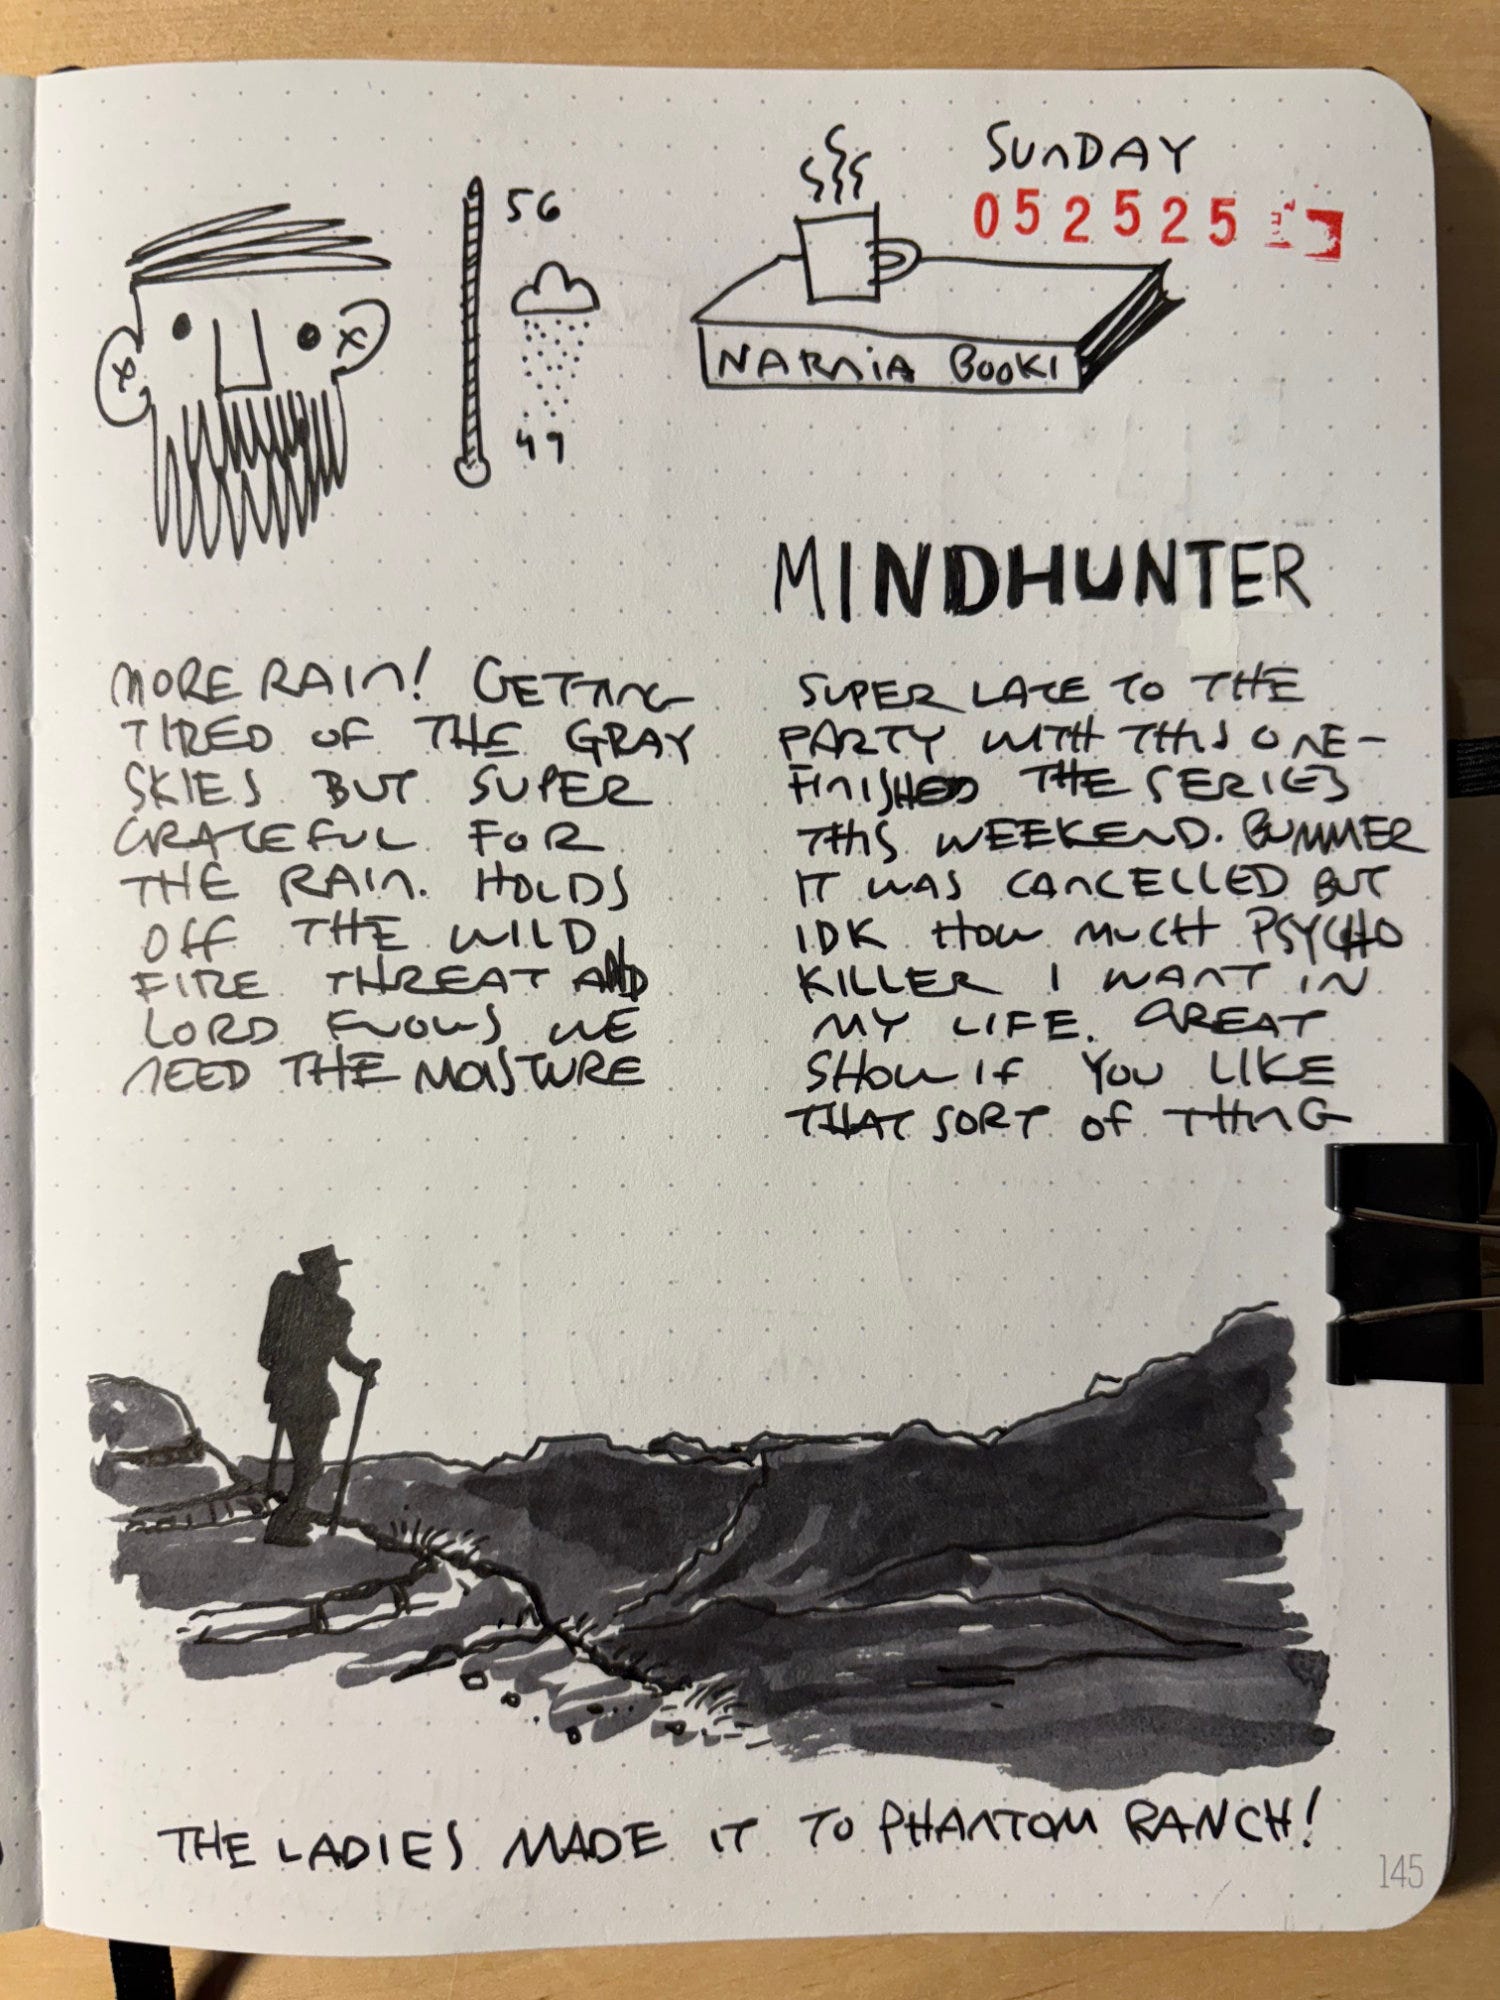 SUNDAY
052525
56
49
NARNIA BOOK 1
MINDHUNTER
MORE RAIN! GETTING
TIRED OF THE GRAY
SKIES BUT SUPER
GRATEFUL FOR
THE RAIN. HOLDS
OFF THE WILD
FIRE THREAT AND
LORD KNOWS WE
NEED THE MOISTURE
SUPER LATE TO THE
PARTY WITH THIS ONE-
FINISHED THE SERIES
THIS WEEKEND. BUMMER
IT WAS CANCELLED BUT
IDK HOW MUCH PSYCHO
KILLER I WANT IN
MY LIFE. GREAT
SHOW IF YOU LIKE
THAT SORT OF THING
THE LADIES MADE IT TO PHANTOM RANCH!
145